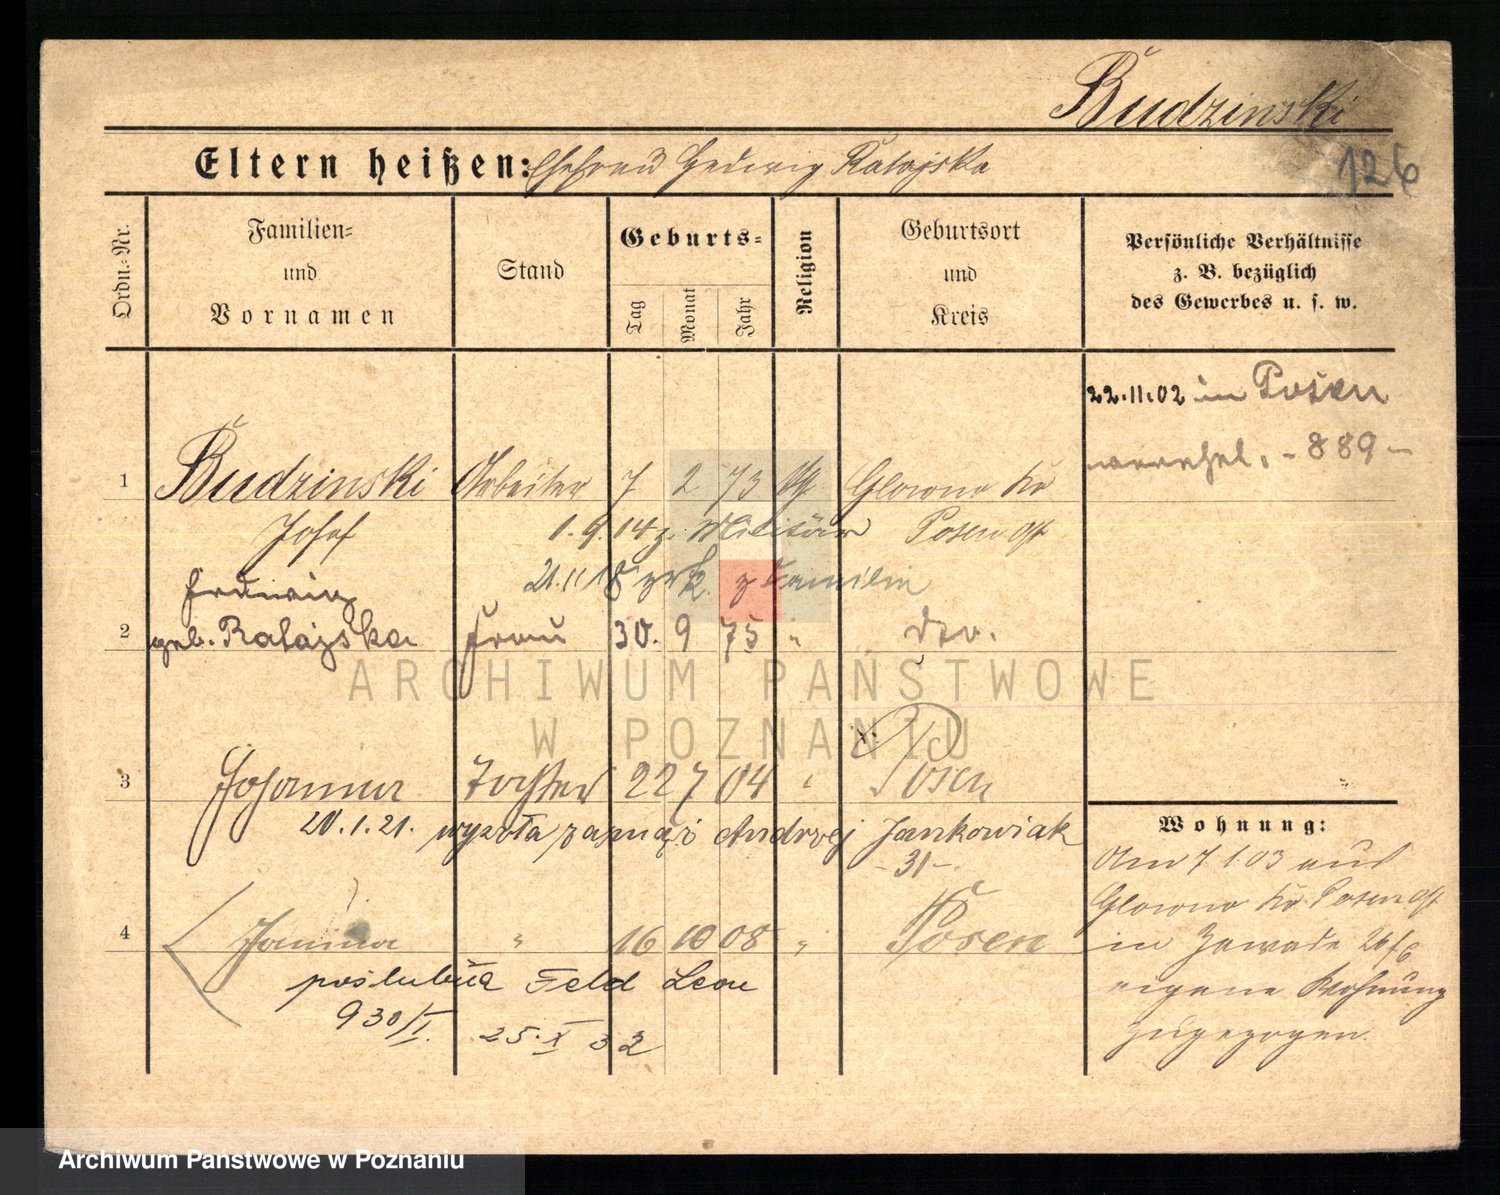 Budzinski
Eltern heißen: Ehefrau Hedwig Ratajska
126
Ordn.-Nr.
Familien- und Vornamen
Stand
Geburts-
Tag Monat Jahr
Religion
Geburtsort und Kreis
Persönliche Verhältnisse
z. B. bezüglich
des Gewerbes u. s. w.
22.11.02 in Posen
verehel. - 889 -
1 Budzinski Arbeiter 7 2 73 Glowno Kr
Josef 1.9.14 z. Militär Posen Ost
21.11.18 zrk. z Familie
Hedwig
2 geb. Ratajska Frau 30. 9 75 " dto.
3 Johanna Tochter 22 7 04 " Posen
20.1.21. wyszła zamąż Andrzej Jankowiak
-31-
4 Janina " 16 10 08 " Posen
poślubiła Feld Leon
930/I. 25.X 32
Wohnung:
Am 7.1.03 aus
Glowno Kr Posen Ost
in Zawade 26
eigene Wohnung
zugezogen.
ARCHIWUM PAŃSTWOWE
W POZNANIU
Archiwum Państwowe w Poznaniu